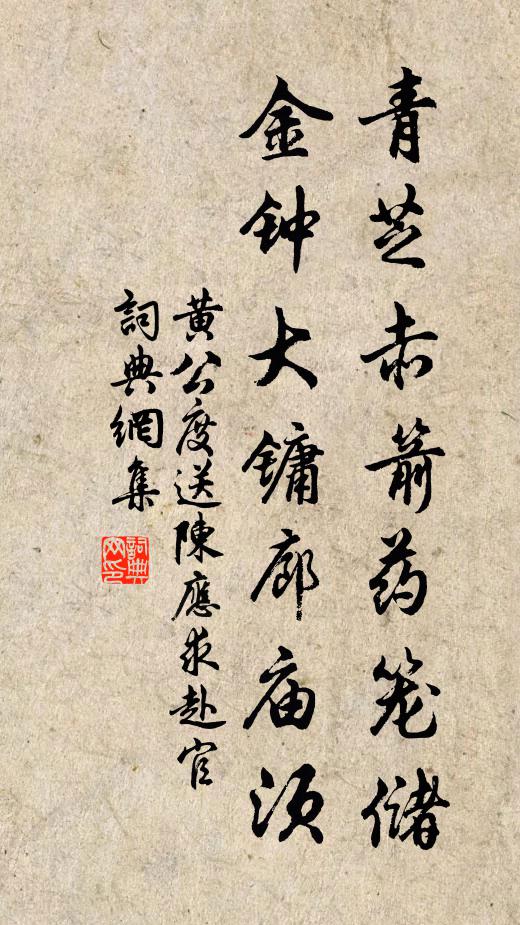 青芝赤箭药笼储
金钟大镛廊庙须
黄公度送陳應求赴官
詞典網集
詞典网印